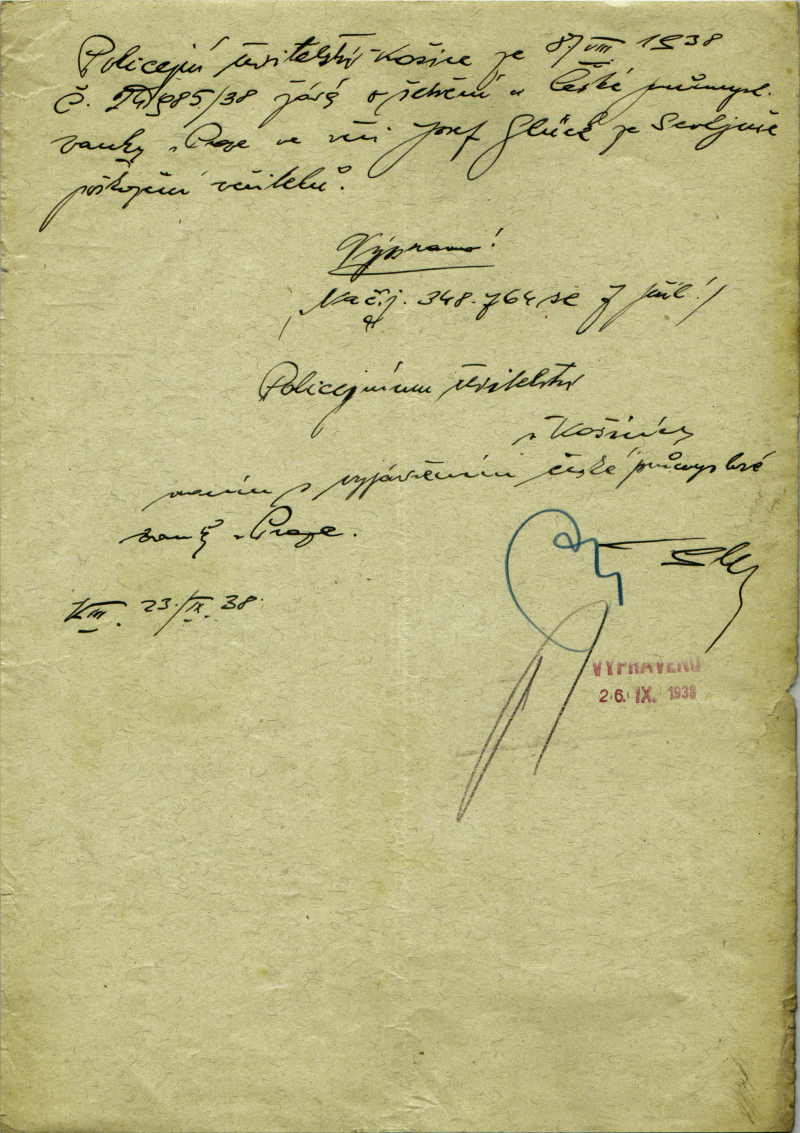 Policejní ředitelství Košice ze 8/VIII 1938
Č. 985/38 žádá o šetření u České průmysl.
banky v Praze ve věci Josef Glück ze Sevljuše
poškození věřitelů.
Vypraviti!
Na č.j. 348.764 se 7 příl.!
Policejnímu ředitelství
v Košicích
s vyjádřením české průmyslové
banky v Praze.
VIII. 23./IX. 38.
VYPRAVENO
26. IX. 1938